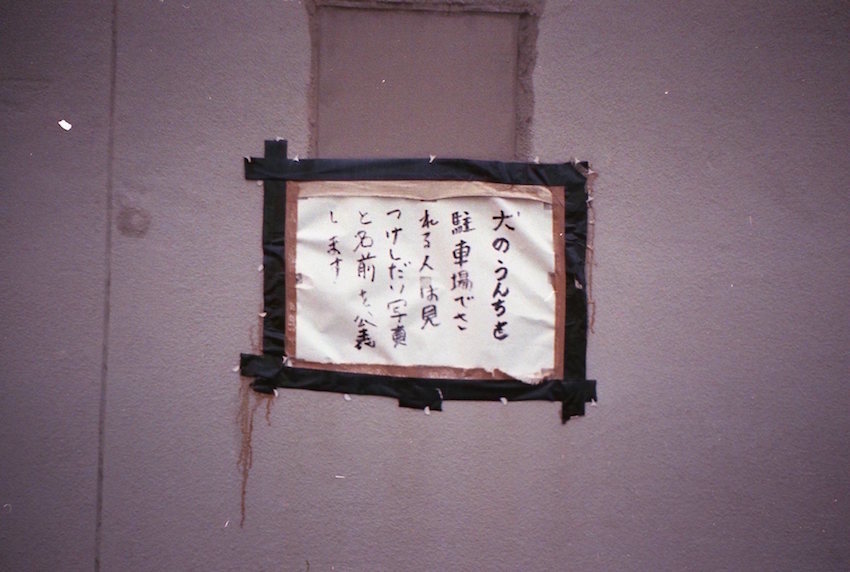 犬のうんちを
駐車場でさ
れる人は見
つけしだい写真
と名前を公表
します